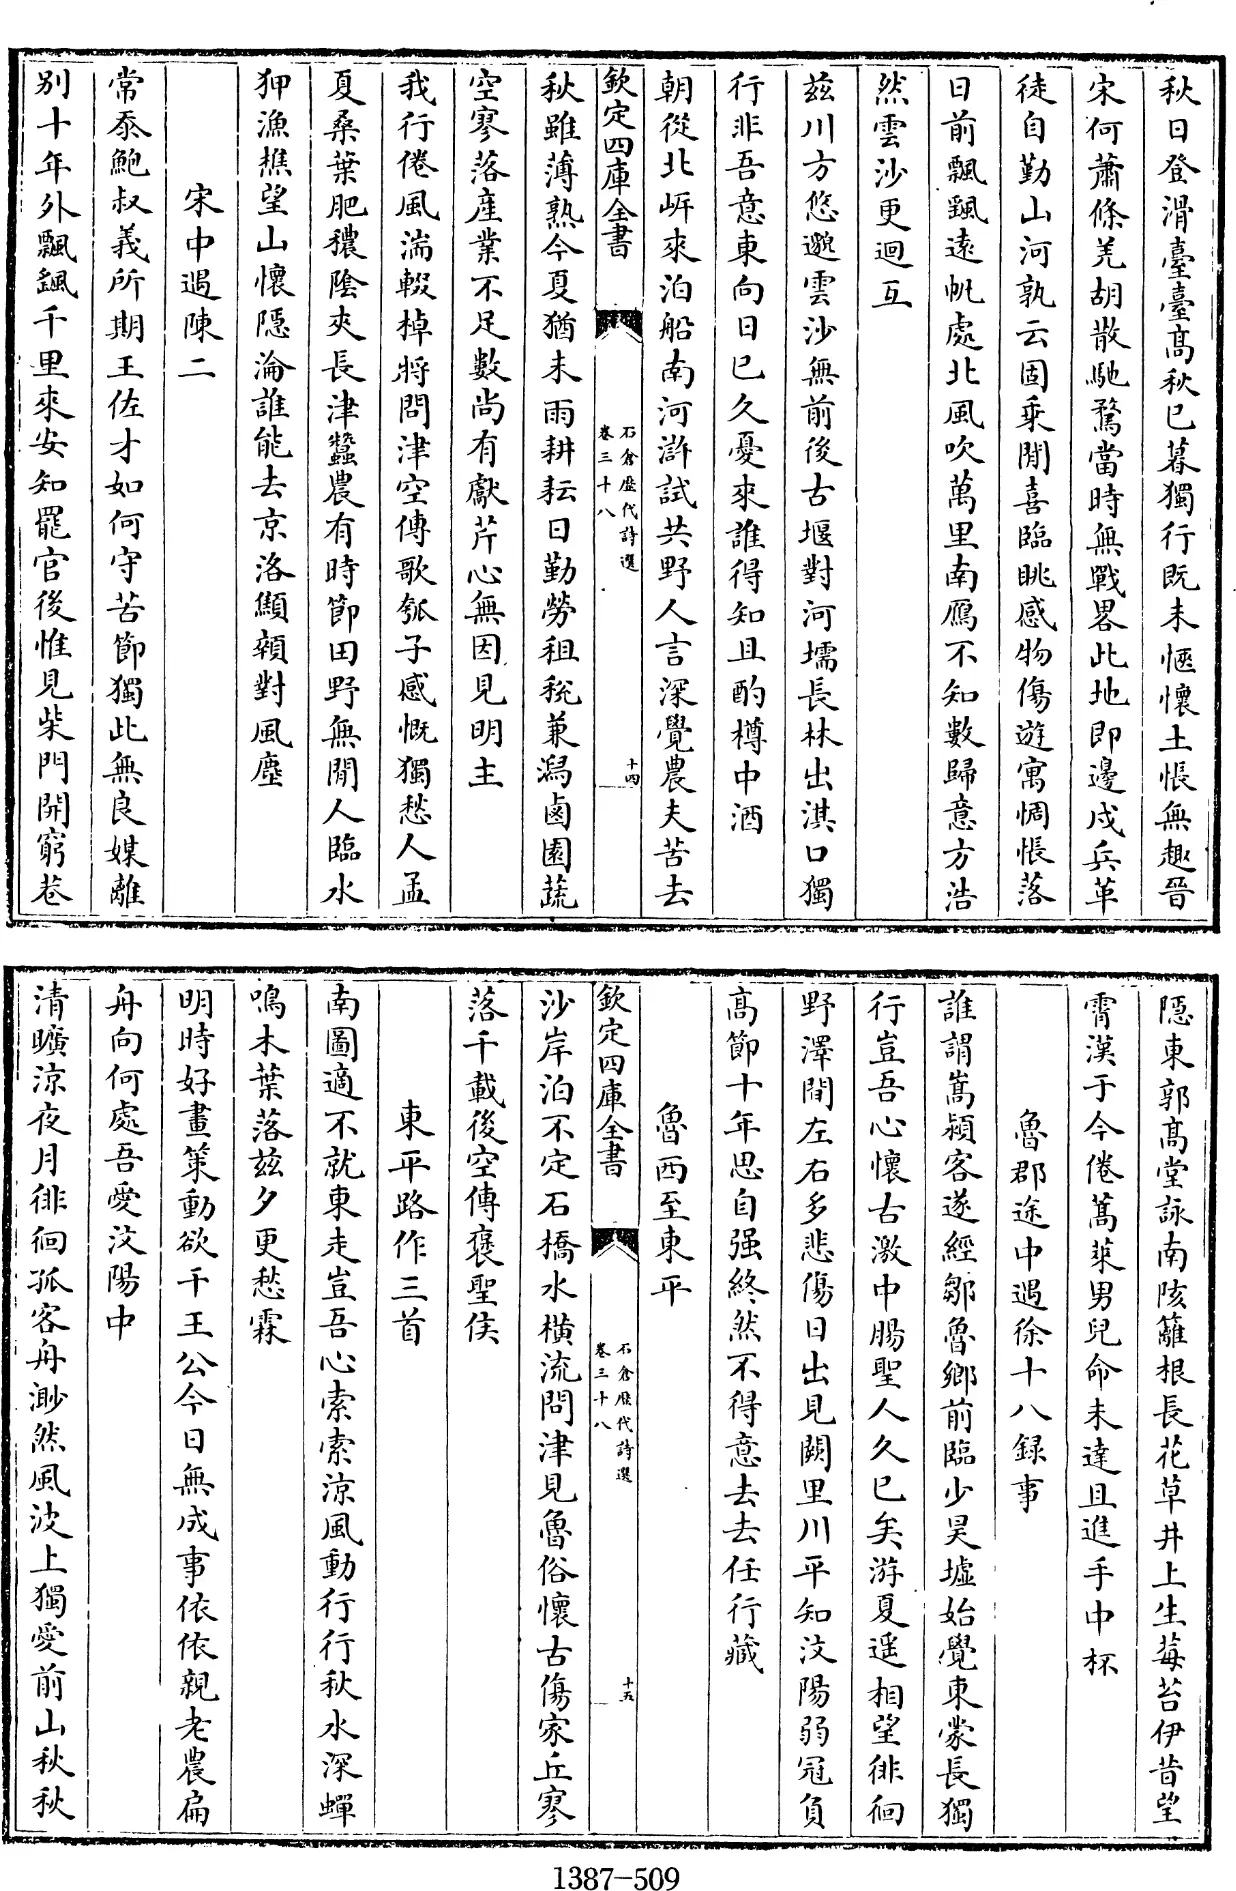 秋日登滑臺臺高秋已暮獨行既未愜懷土悵無趣晉
宋何蕭條羌胡散馳騖當時無戰畧此地即邊戍兵革
徒自勤山河孰云固乗閒喜臨眺感物傷遊寓惆悵落
日前飄颻遠帆處北風吹萬里南鴈不知數歸意方浩
然雲沙更迴互
兹川方悠邈雲沙無前後古堰對河壖長林出淇口獨
行非吾意東向日已久憂來誰得知且酌樽中酒
朝從北岸來泊船南河滸試共野人言深覺農夫苦去
欽定四庫全書
石倉歷代詩選
卷三十八
十四
秋雖薄熟今夏猶未雨耕耘日勤勞租稅兼潟鹵園蔬
空寥落産業不足數尚有獻芹心無因見明主
我行倦風湍輟棹將問津空傳歌瓠子感慨獨愁人孟
夏桑葉肥穠陰夾長津蠶農有時節田野無閒人臨水
狎漁樵望山懷隱淪誰能去京洛顦顇對風塵
宋中遇陳二
常忝鮑叔義所期王佐才如何守苦節獨此無良媒離
别十年外飄颻千里來安知罷官後惟見柴門開窮巷
隱東郭髙堂詠南陔籬根長花草井上生莓苔伊昔望
霄漢于今倦蒿萊男兒命未達且進手中杯
魯郡途中遇徐十八録事
誰謂嵩潁客遂經鄒魯鄉前臨少昊墟始覺東蒙長獨
行豈吾心懷古激中腸聖人久已矣游夏遥相望徘徊
野澤間左右多悲傷日出見闕里川平知汶陽弱冠負
高節十年思自强終然不得意去去任行藏
魯西至東平
欽定四庫全書
石倉歷代詩選
卷三十八
十五
沙岸泊不定石橋水橫流問津見魯俗懷古傷家丘寥
落千載後空傳褒聖侯
東平路作三首
南圖適不就東走豈吾心索索涼風動行行秋水深蟬
鳴木葉落兹夕更愁霖
明時好畫策動欲干王公今日無成事依依親老農扁
舟向何處吾愛汶陽中
清曠涼夜月徘徊孤客舟渺然風波上獨愛前山秋秋
1387-509